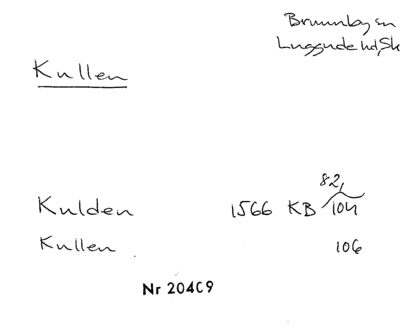 Brunnby sn
Luggude hd, Sk
Kullen
82,
Kulden 1566 KB 104
Kullen 106
Nr 20409